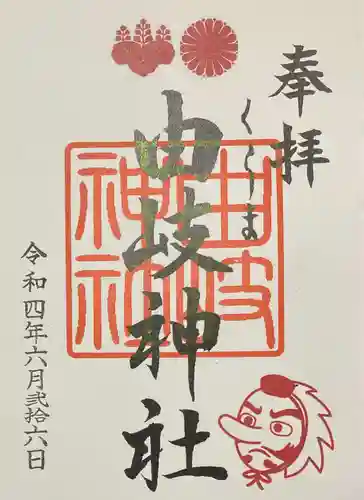 奉拝
くらま
由岐神社
由岐
神社
令和四年六月弐拾六日